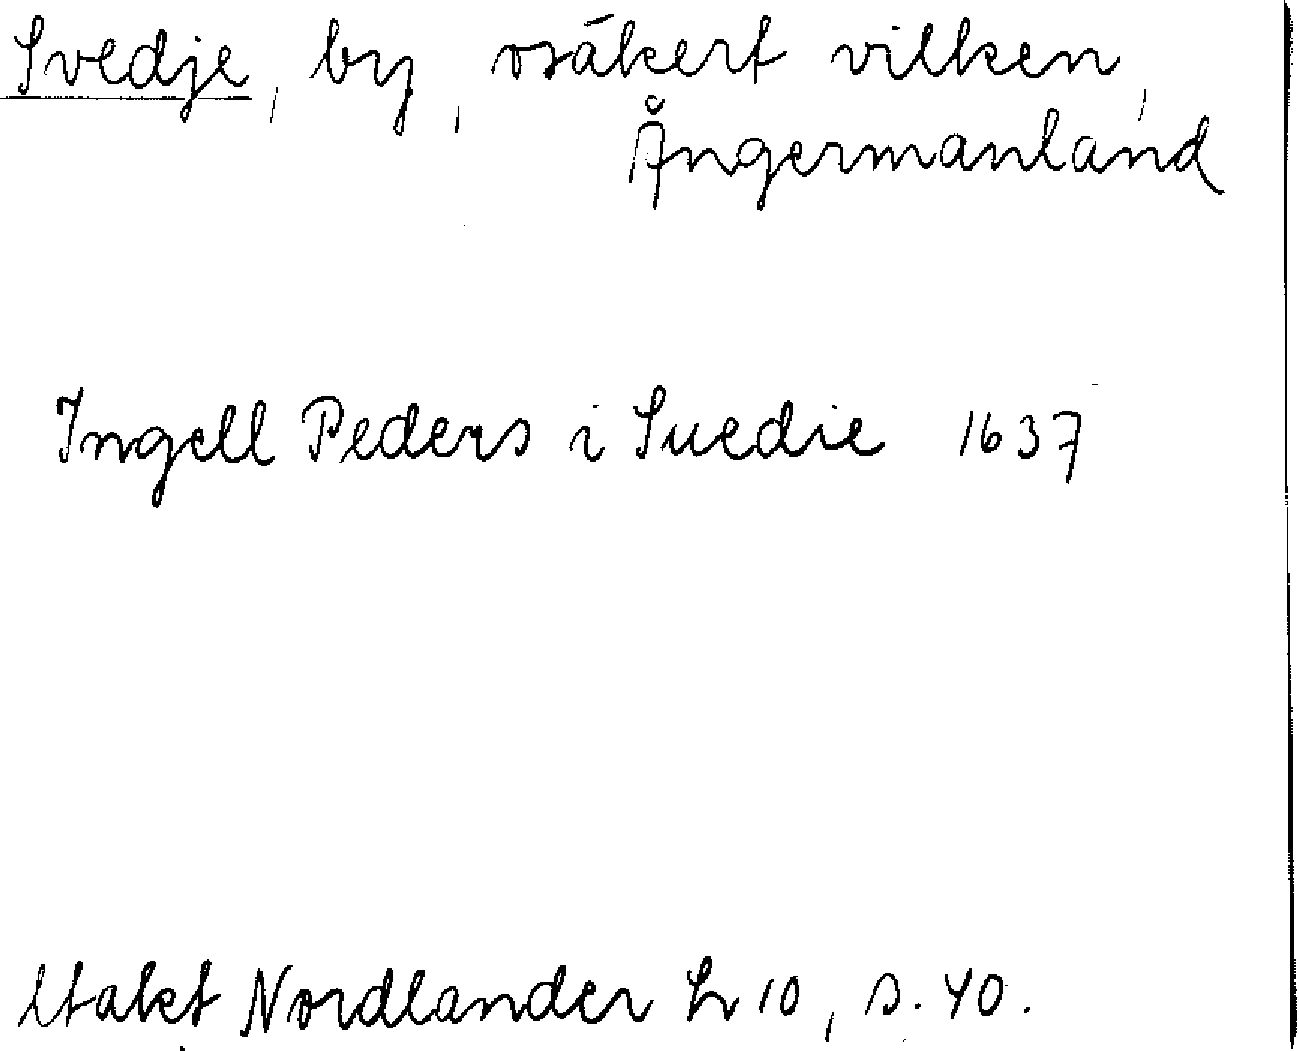 Svedje, by, osäkert vilken,
Ångermanland
Ingell Peders i Suedie 1637
Nordlander h 10, s. 40.